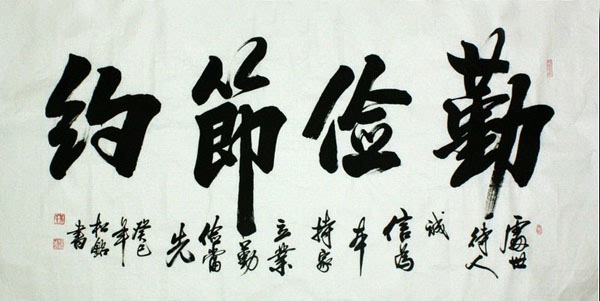 勤俭節约
處世
待人
誠
信為
本
持家
立業
勤
俭當
先
癸巳
年
松銘
書